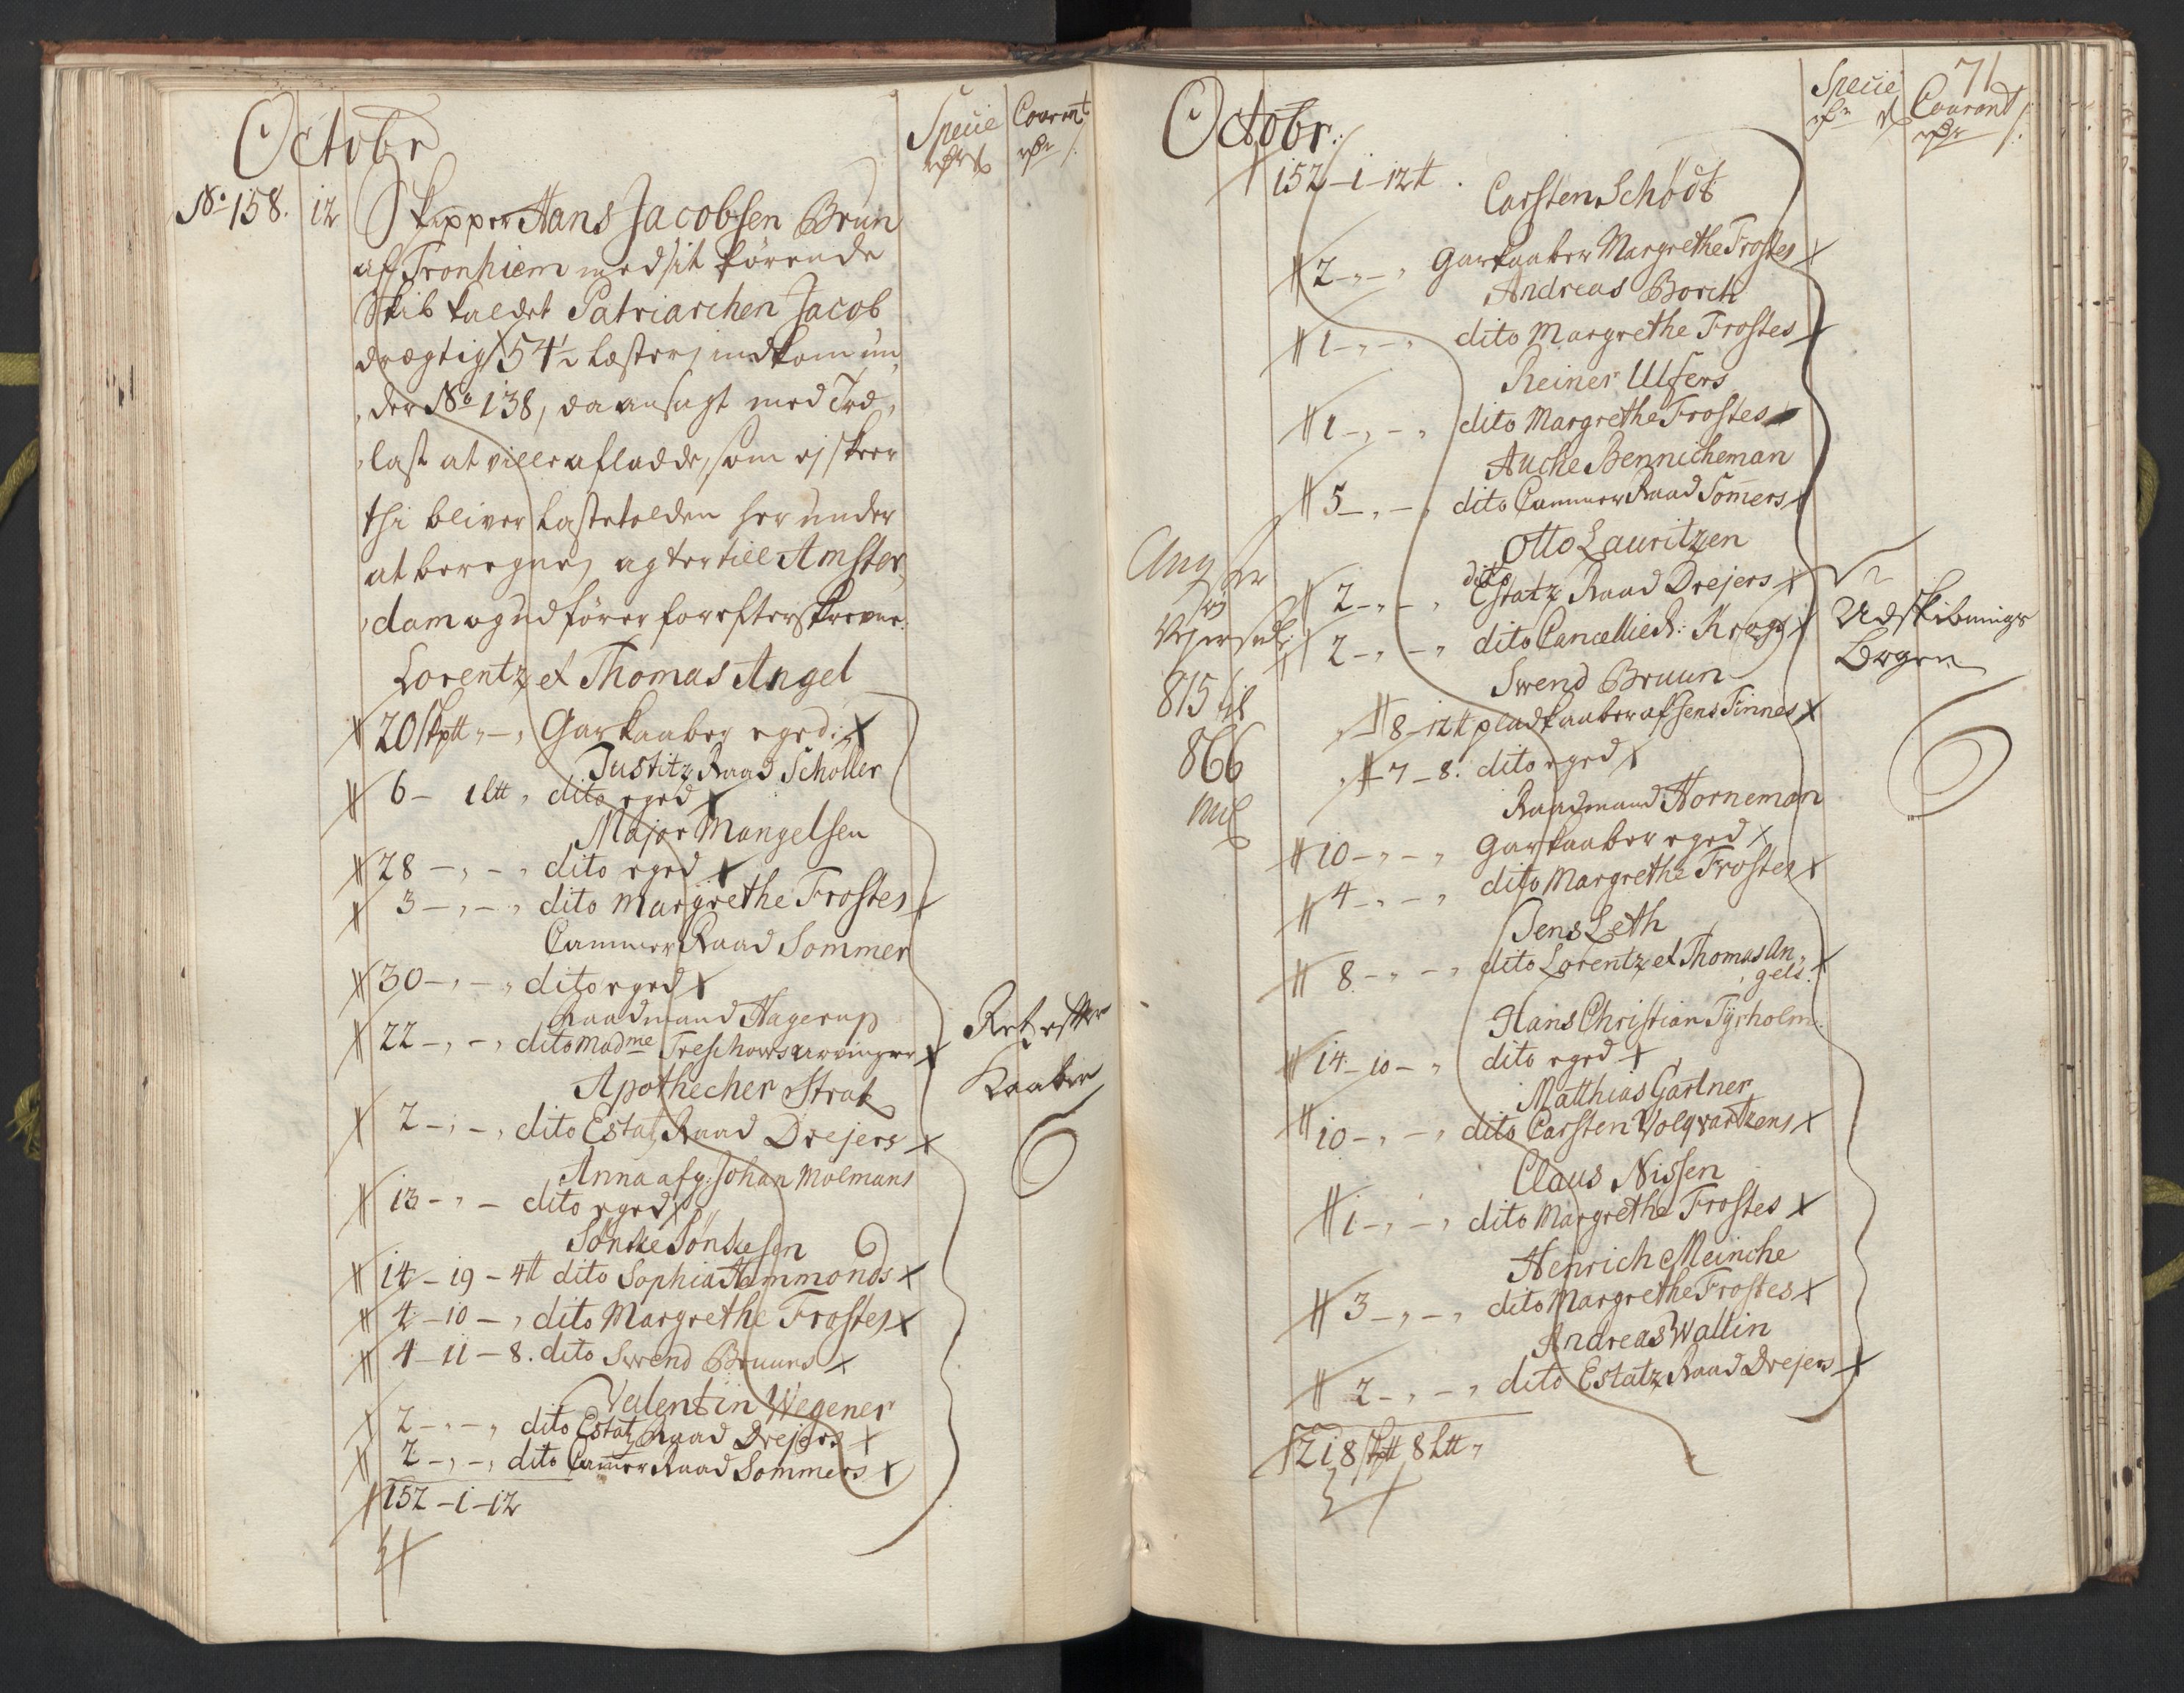 Octobr
Specie Courant
No. 158. 12 Skipper Hans Jacobsen Brun
af Tronhiem med sit förende
Skib kaldet Patriarchen Jacob
drægtig 54½ Læster, indkom un,
,der No 138, da ansagt med Træ,
,last at ville afladde, som ej skeer
thi bliver Lastetolden her under
at beregne, agter till Amster,
,dam og udförer for efterskrevne:
Lorentz et Thomas Angel
20 Skptt „ – „ Garkaaber eget:
Justitz Raad Schöller
6 – 1 Ltt „ dito eget
Major Mangelsen
28 – „ – „ dito eget
3 – „ – „ dito Margrethe Frostes
Cammer Raad Sommer
30 – „ – „ dito eget
Raadmand Hagerup
22 – „ – „ dito Madme Treschows arvinger
Apothecher Strak
2 – „ – „ dito Estatz Raad Drejers
Anna afg: Johan Molmans
13 – „ – dito eget
Sönke Sönkesen
14 – 19 – 4 tt dito Sophia Hammonds
4 – 10 – „ dito Margrethe Frostes
4 – 11 – 8. dito Swend Bruuns
Valentin Wegener
2 – „ – „ dito Estatz Raad Drejers
2 – „ – „ dito Cammer Raad Sommers
152 – 1 – 12
Ret efter
Kaaber
71
Octobr:
Specie Courant
152 – 1 – 12 tt
Carsten Schödt
2 – „ – „ Garkaaber Margrethe Frostes
Andreas Borch
1 – „ – „ dito Margrethe Frostes
Reiner Ulfers
1 – „ – „ dito Margrethe Frostes
Auche Bennicheman
5 – „ – „ dito Cammer Raad Somers
Otto Lauritzen
2 – „ – „ dito Estatz Raad Drejers
2 – „ – „ dito Cancellie R: Krogs
Swend Bruun
„ – 8 – 12 tt pladkaaber af Jens Finnes
„ – 7 – 8. dito eget
Raadmand Horneman
10 – „ – „ Garkaaber eget
4 – „ – „ dito Margrethe Frostes
Jens Leth
8 – „ – „ dito Lorentz et Thomas An,
,gels.
Hans Christian Tyrholm:
14 – 10 – „ dito eget
Matthias Gartner
10 – „ – „ dito Carsten Volqvartzens
Claus Nissen
1 – „ – „ dito Margrethe Frostes
Henrich Meinche
3 – „ – „ dito Margrethe Frostes
Andreas Wallin
2 – „ – „ dito Estatz Raad Drejers
218 Skptt 8 Ltt „
815 til
866
Udskibnings
Bogen